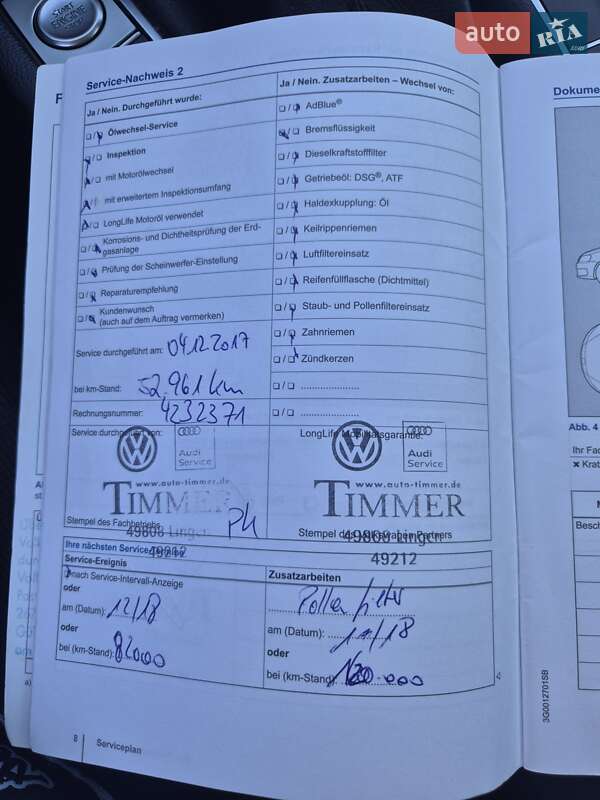 START
ENGINE
STOP
auto RIA.com
Service-Nachweis 2
Ja / Nein. Durchgeführt wurde:
Ölwechsel-Service
Inspektion
mit Motorölwechsel
mit erweitertem Inspektionsumfang
LongLife Motoröl verwendet
Korrosions- und Dichtheitsprüfung der Erd-
gasanlage
Prüfung der Scheinwerfer-Einstellung
Reparaturempfehlung
Kundenwunsch
(auch auf dem Auftrag vermerken)
Service durchgeführt am: 04.12.2017
bei km-Stand: 52.961 km
Rechnungsnummer: 4232371
Service durchgeführt von:
Audi
Service
www.auto-timmer.de
TIMMER
Stempel des Fachbetriebs
49808 Lingen
49212
Ja / Nein. Zusatzarbeiten – Wechsel von:
AdBlue®
Bremsflüssigkeit
Dieselkraftstofffilter
Getriebeöl: DSG®, ATF
Haldexkupplung: Öl
Keilrippenriemen
Luftfiltereinsatz
Reifenfüllflasche (Dichtmittel)
Staub- und Pollenfiltereinsatz
Zahnriemen
Zündkerzen
LongLife Mobilitätsgarantie:
Audi
Service
www.auto-timmer.de
TIMMER
Stempel des Volkswagen Partners
49808 Lingen
49212
Ihre nächsten Service
Service-Ereignis
nach Service-Intervall-Anzeige
oder
am (Datum): 12/18
oder
bei (km-Stand): 82000
Zusatzarbeiten
Pollenfilter
am (Datum):
oder
bei (km-Stand)
8 Serviceplan
3G0012701SB
Dokume
Abb. 4
Ihr Fa
Krat
Besch